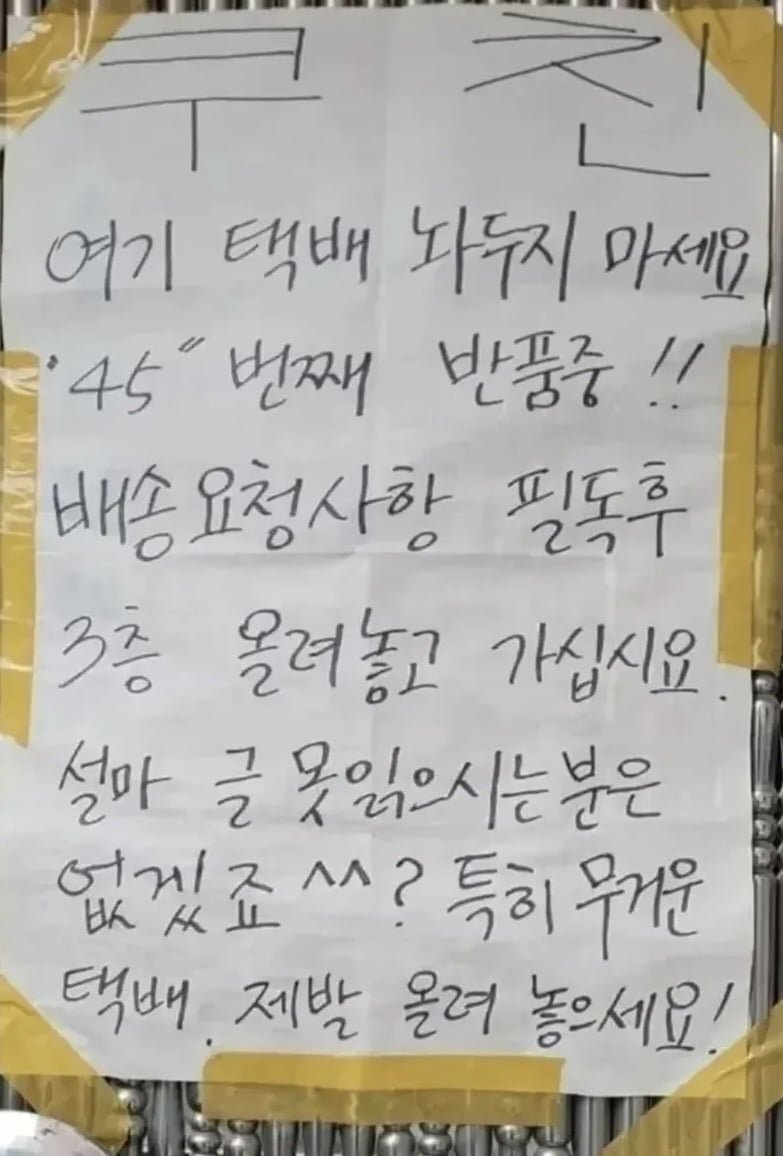 쿠 친
여기 택배 놔두지 마세요
"45" 번째 반품중 !!
배송요청사항 필독후
3층 올려놓고 가십시요.
설마 글 못읽으시는분은
없겠죠 ^^ ? 특히 무거운
택배. 제발 올려 놓으세요!